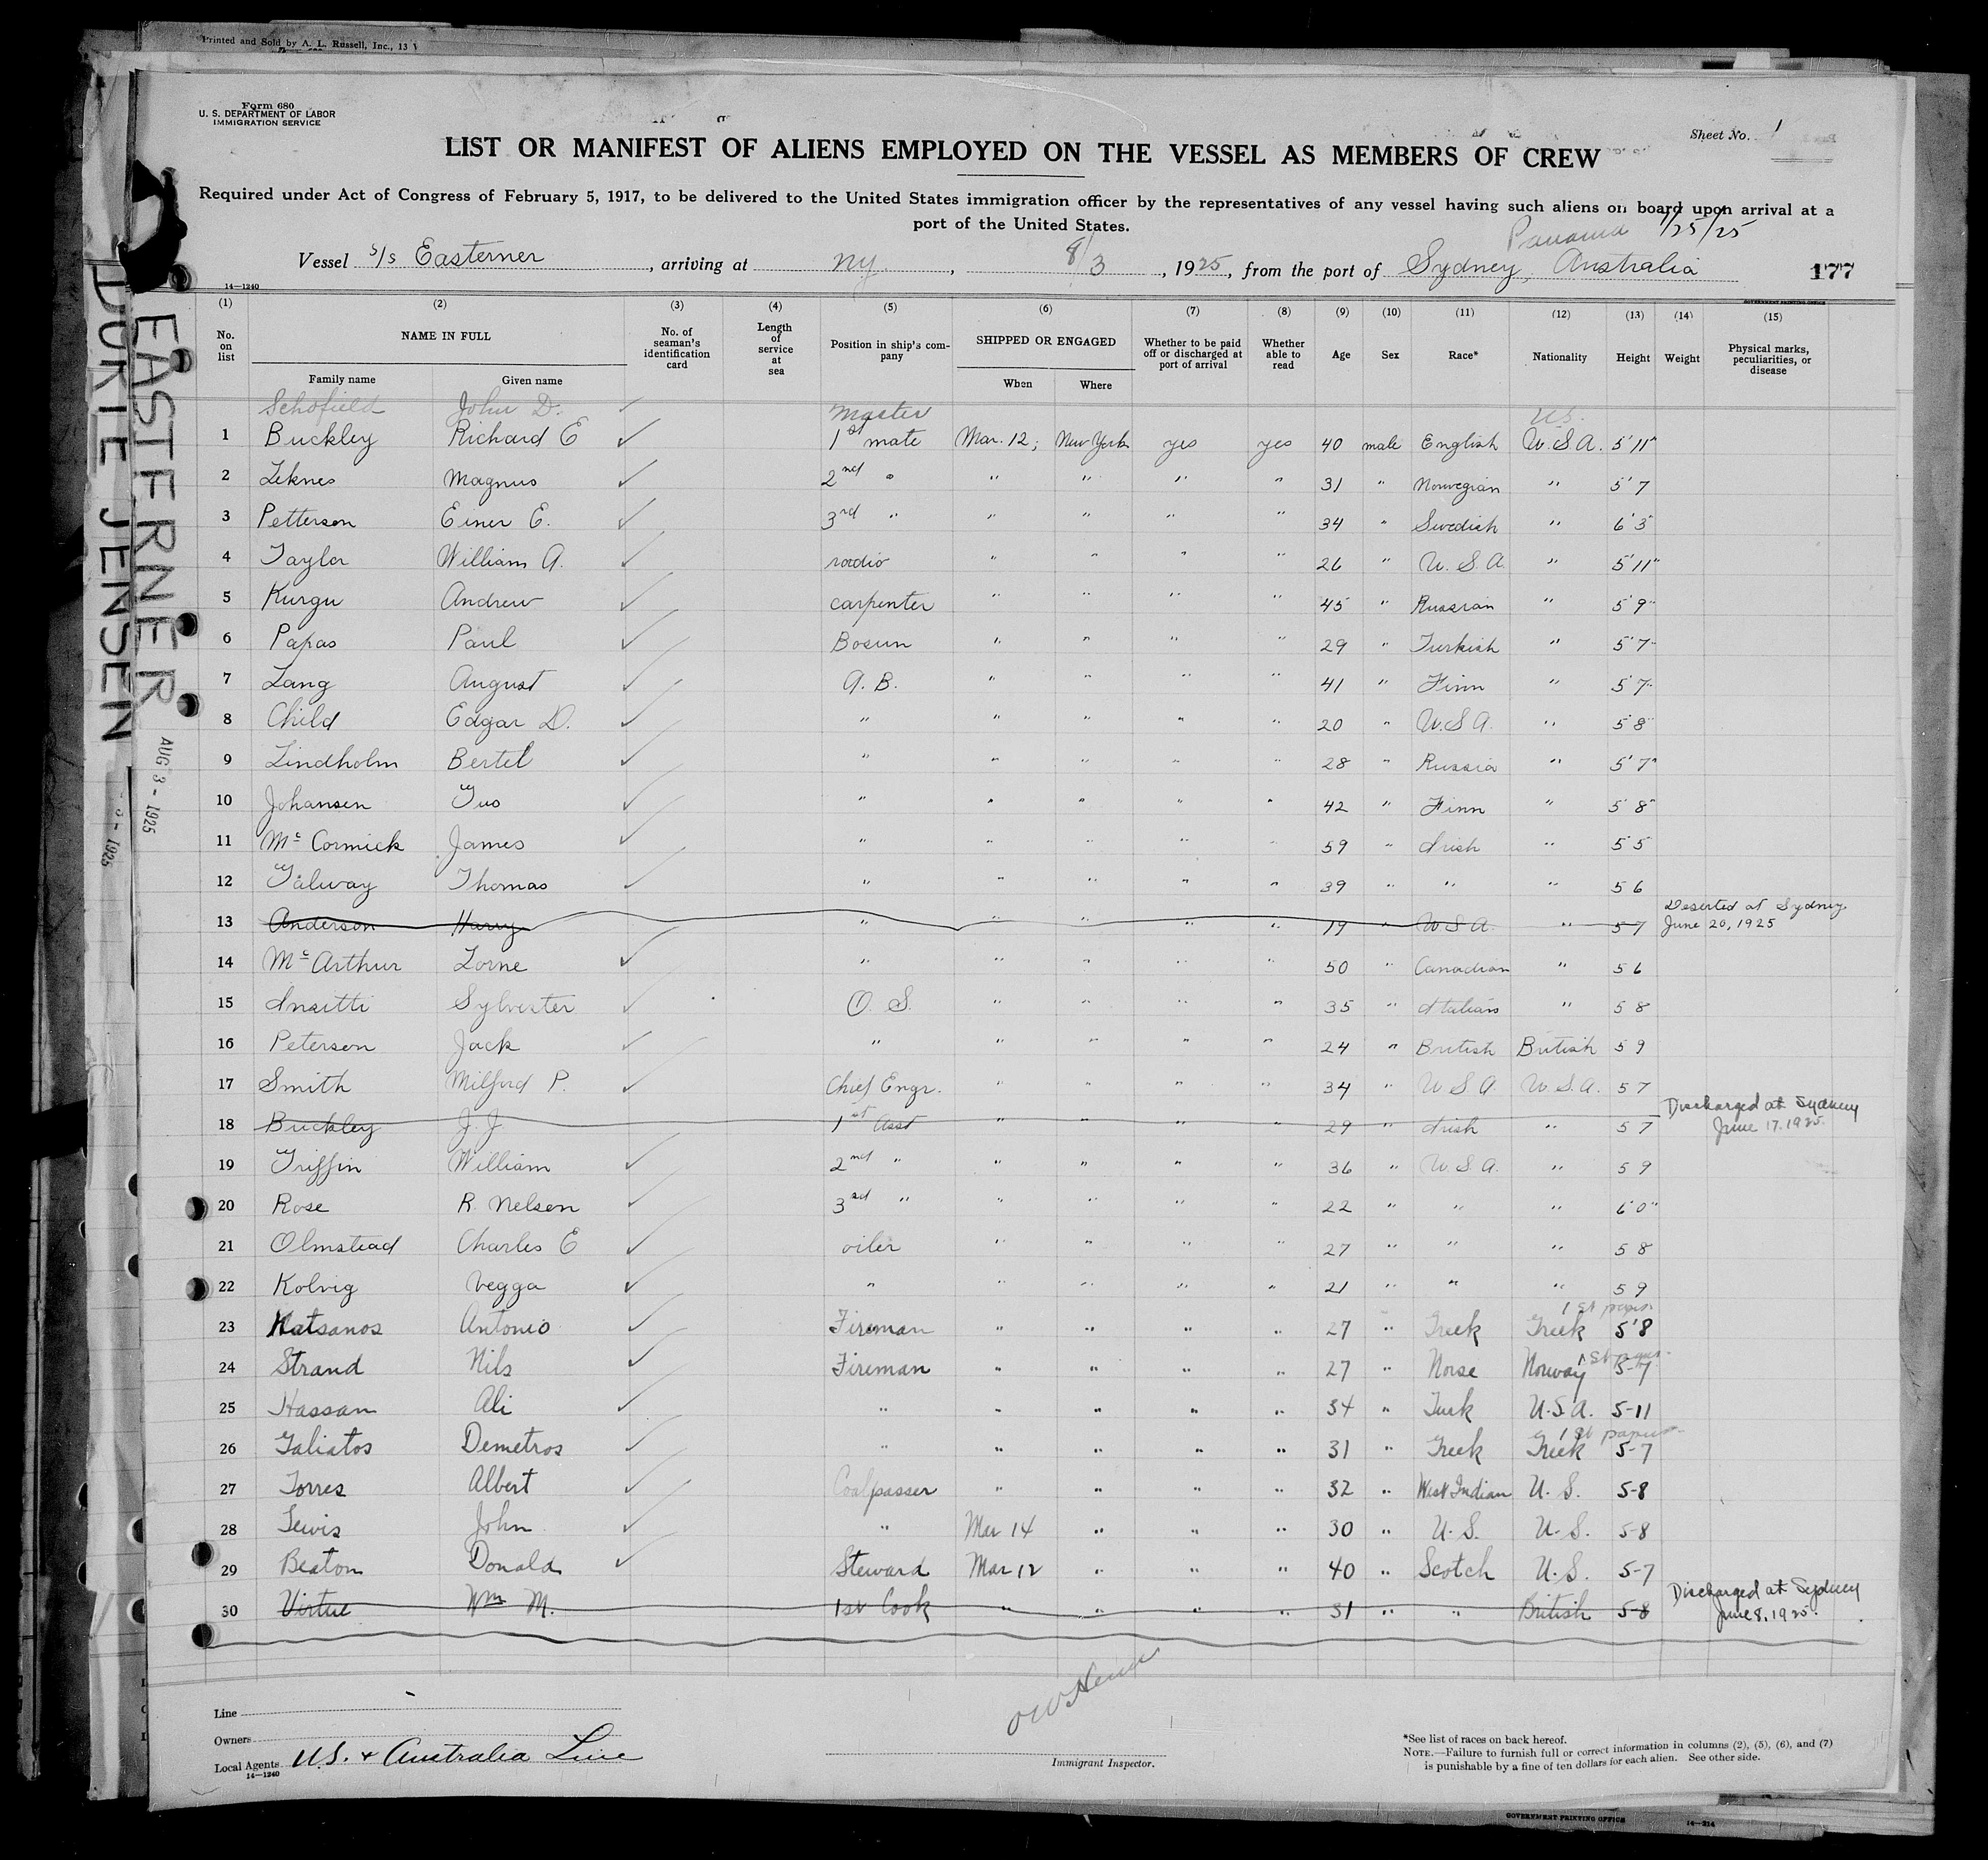 Printed and Sold by A. L. Russell, Inc., 13
Form 680
U. S. DEPARTMENT OF LABOR
IMMIGRATION SERVICE
Sheet No. 1
LIST OR MANIFEST OF ALIENS EMPLOYED ON THE VESSEL AS MEMBERS OF CREW
Required under Act of Congress of February 5, 1917, to be delivered to the United States immigration officer by the representatives of any vessel having such aliens on board upon arrival at a
port of the United States.
Panama 7/25/25
Vessel S/S Easterner, arriving at NY., 8/3, 1925, from the port of Sydney, Australia
177
14—1240
GOVERNMENT PRINTING OFFICE
(1) (2) (3) (4) (5) (6) (7) (8) (9) (10) (11) (12) (13) (14) (15)
No. on list NAME IN FULL No. of seaman's identification card Length of service at sea Position in ship's company SHIPPED OR ENGAGED Whether to be paid off or discharged at port of arrival Whether able to read Age Sex Race* Nationality Height Weight Physical marks, peculiarities, or disease
Family name Given name When Where
Schofield John D. ✓ Master U.S.
1 Buckley Richard E ✓ 1st mate Mar. 12; New York yes yes 40 male English U.S.A. 5'11"
2 Leknes Magnus ✓ 2nd " " " " " 31 " Norwegian " 5'7
3 Petterson Einer E. ✓ 3rd " " " " " 34 " Swedish " 6'3"
4 Taylor William A. ✓ radio " " " " 26 " U.S.A. " 5'11"
5 Kurgu Andrew ✓ carpenter " " " " 45 " Russian " 5'9"
6 Papas Paul ✓ Bosun " " " " 29 " Turkish " 5'7"
7 Lang August ✓ A.B. " " " " 41 " Finn " 5'7"
8 Child Edgar D. ✓ " " " " " 20 " U.S.A. " 5'8"
9 Lindholm Bertel ✓ " " " " " 28 " Russia " 5'7"
10 Johansen Ivo ✓ " " " " " 42 " Finn " 5'8"
11 McCormick James ✓ " " " " " 59 " Irish " 5 5
12 Galway Thomas ✓ " " " " " 39 " " " 5 6
13 Anderson Harry " " " " " 19 " U.S.A. " 5 7 Deserted at Sydney June 20, 1925
14 McArthur Lorne ✓ " " " " " 50 " Canadian " 5 6
15 Insitti Sylvester ✓ O.S. " " " " 35 " Italian " 5 8
16 Peterson Jack ✓ " " " " " 24 " British British 5 9
17 Smith Milford P. ✓ Chief Engr. " " " " 34 " U.S.A. U.S.A. 5 7
18 Buckley J.J. 1st Asst " " " " 29 " Irish " 5 7 Discharged at Sydney June 17, 1925.
19 Griffin William ✓ 2nd " " " " " 36 " U.S.A. " 5 9
20 Rose R. Nelson ✓ 3rd " " " " " 22 " " " 6'0"
21 Olmstead Charles E ✓ oiler " " " " 27 " " " 5 8
22 Kolvig Vegga ✓ " " " " " 21 " " " 5 9
1st papers
23 Katsanos Antonio ✓ Fireman " " " " 27 " Greek Greek 5'8
1st papers
24 Strand Nils ✓ Fireman " " " " 27 " Norse Norway 5-7
25 Hassan Ali ✓ " " " " " 34 " Turk U.S.A. 5-11
1st papers
26 Galiatos Demetros ✓ " " " " " 31 " Greek Greek 5-7
27 Torres Albert ✓ Coalpasser " " " " 32 " West Indian U.S. 5-8
28 Lewis John ✓ " Mar 14 " " " 30 " U.S. U.S. 5-8
29 Beaton Donald ✓ Steward Mar 12 " " " 40 " Scotch U.S. 5-7
30 Virtue Wm M. 1st Cook " " " " 31 " " British 5-8 Discharged at Sydney June 8, 1925.
Line
Owners
Local Agents U.S. & Australia Line
14—1240
Immigrant Inspector.
*See list of races on back hereof.
NOTE.—Failure to furnish full or correct information in columns (2), (5), (6), and (7)
is punishable by a fine of ten dollars for each alien. See other side.
GOVERNMENT PRINTING OFFICE
14—214
EASTERNER
AUG 3 - 1925
DORTE JENSEN
3 - 1925